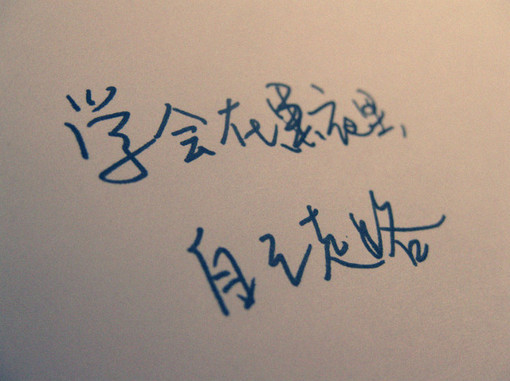 学会在黑夜里，
自己走路